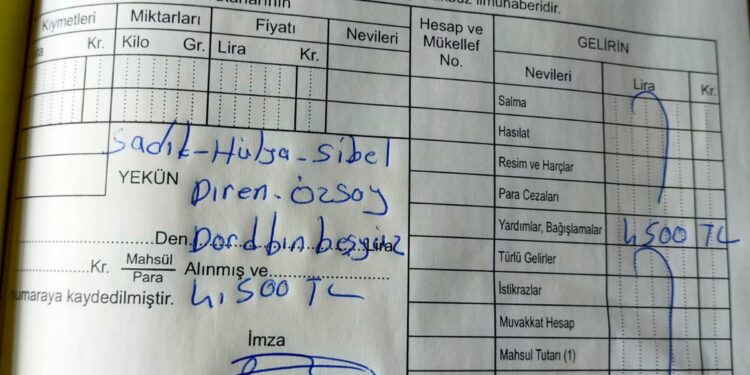 buz ilmühaberidir.
Kıymetleri Miktarları Fiyatı Nevileri Hesap ve Mükellef No. GELİRİN
Kr. Kilo Gr. Lira Kr. Nevileri Lira Kr.
Salma
Hasılat
Sadık-Hülya-Sibel
Resim ve Harçlar
YEKÜN Diren-Özsoy
Para Cezaları
Den. Dordbin beşyüz Lira
Yardımlar, Bağışlamalar 4500 TL
Türlü Gelirler
Kr. Mahsül Para Alınmış ve
İstikrazlar
numaraya kaydedilmiştir. 4.500 TL
Muvakkat Hesap
İmza
Mahsul Tutarı (1)